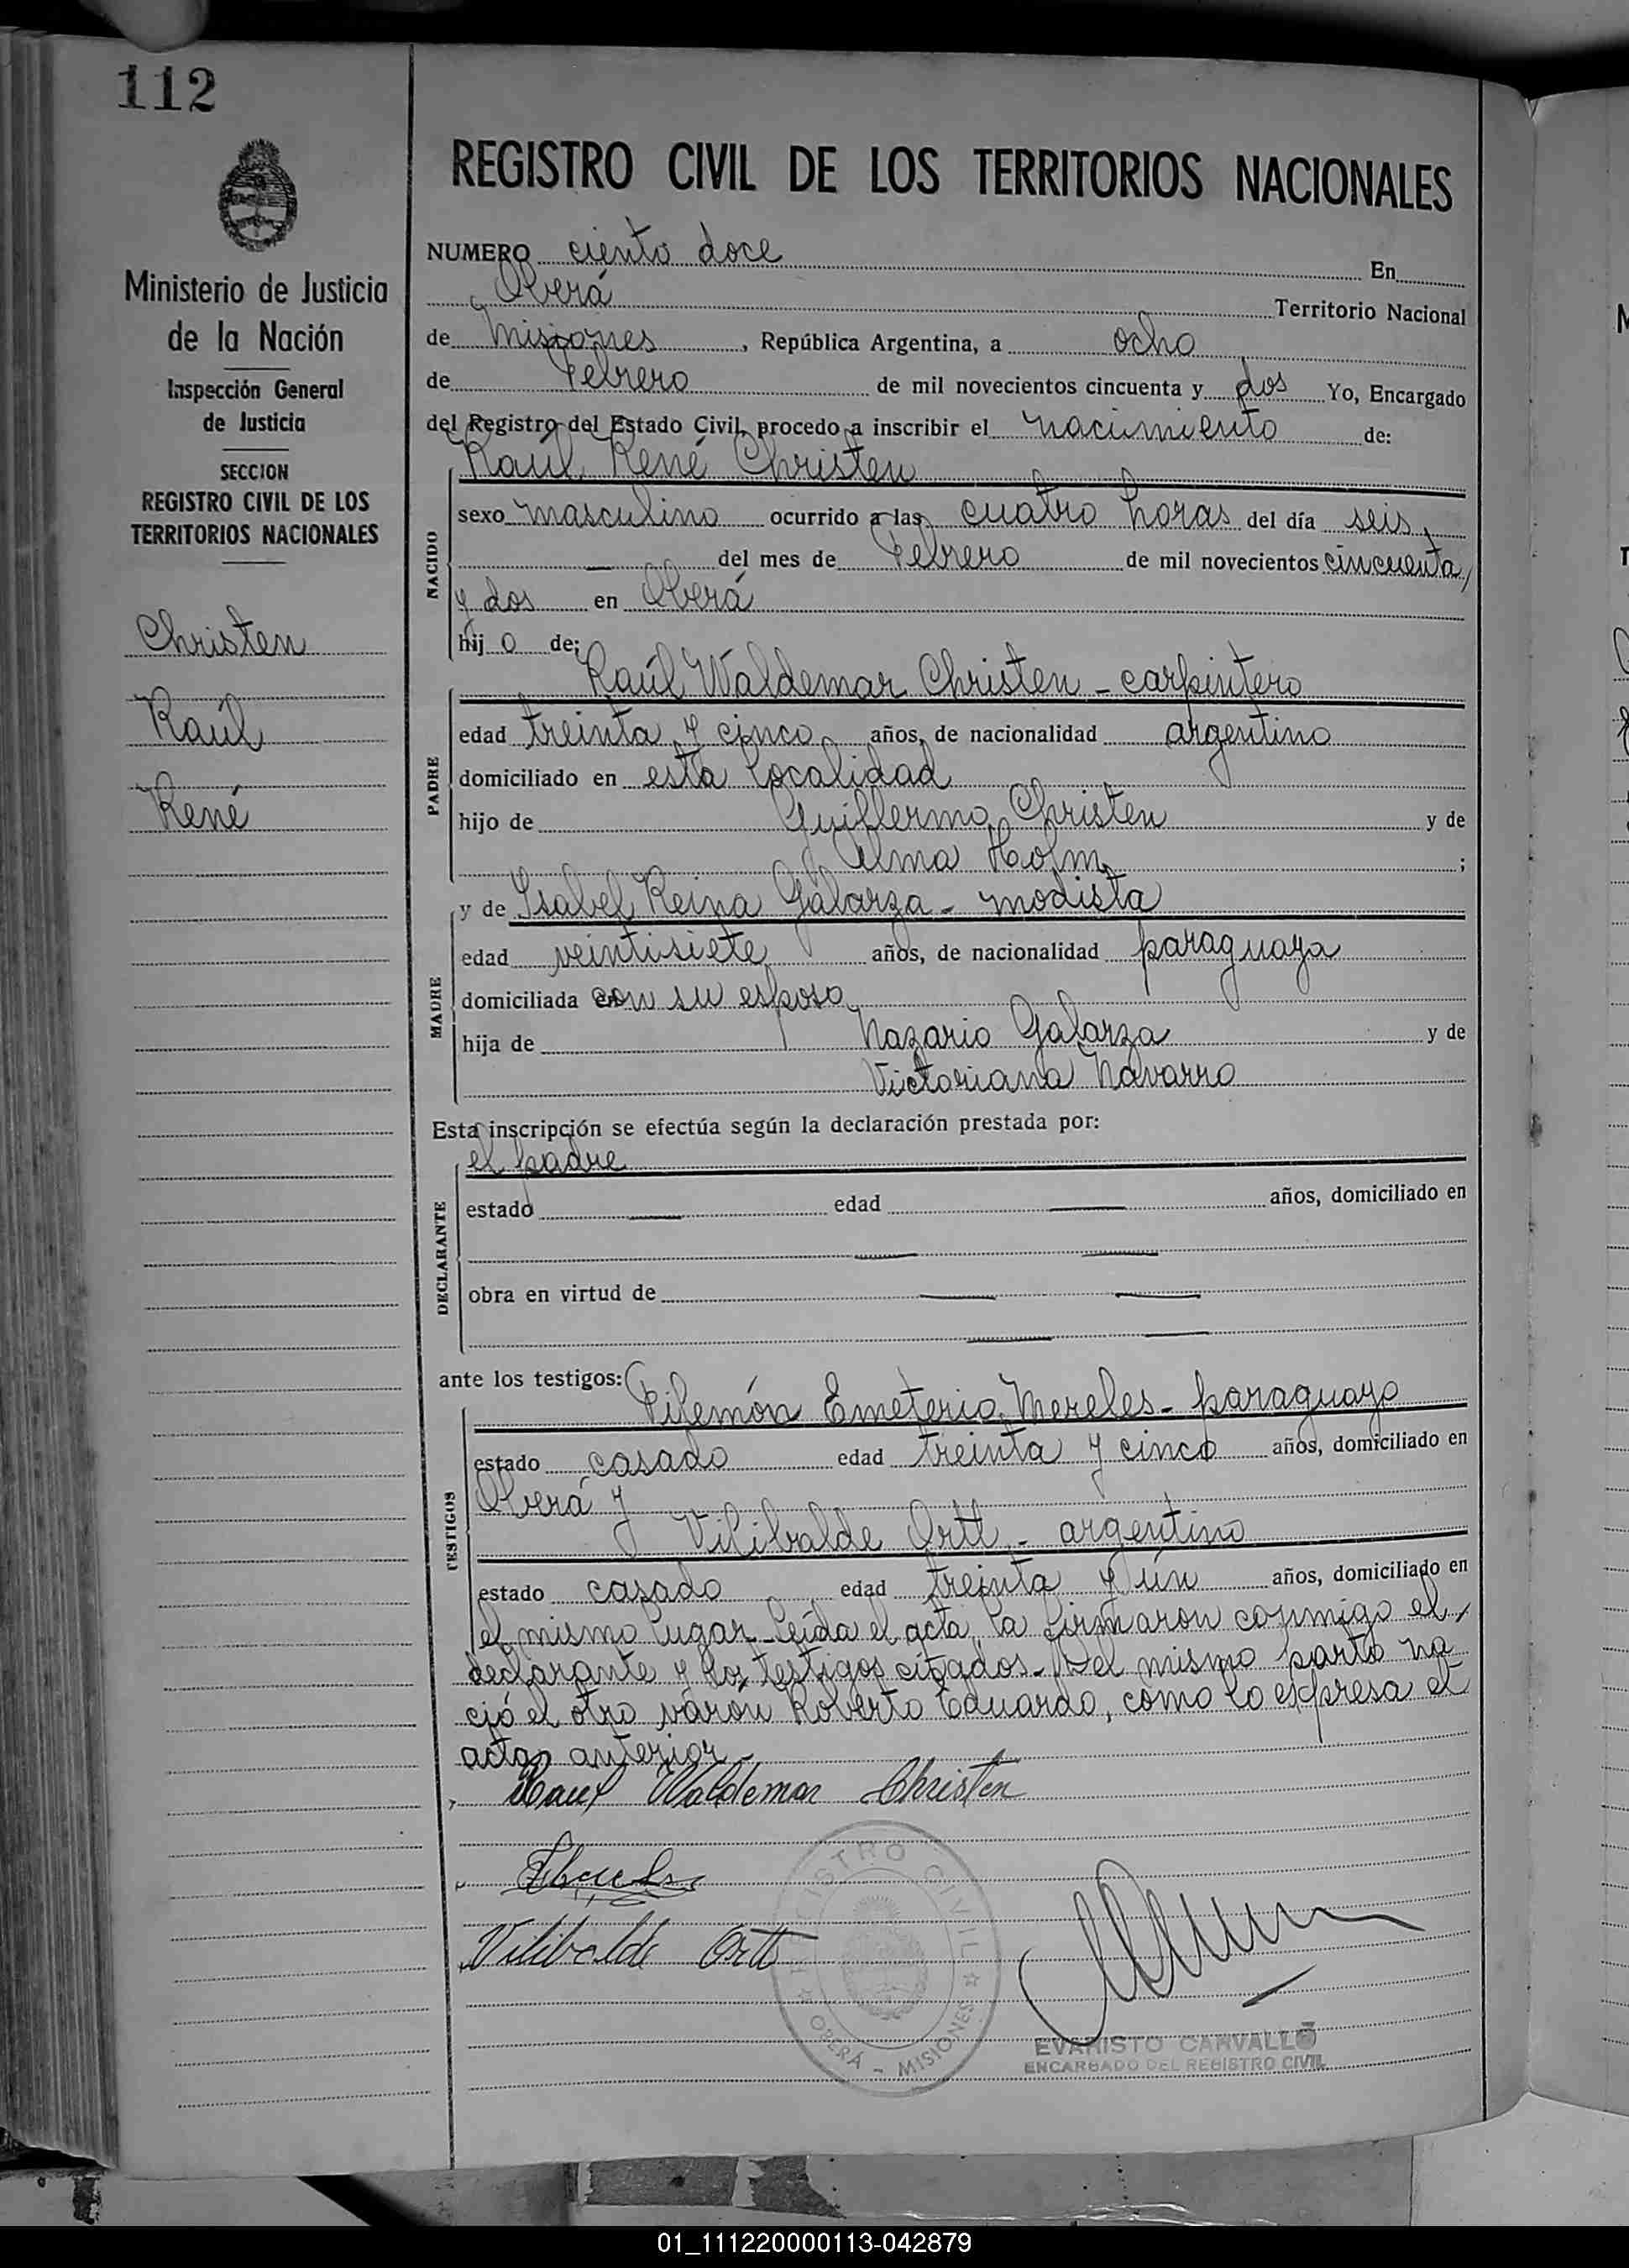 112
REGISTRO CIVIL DE LOS TERRITORIOS NACIONALES
Ministerio de Justicia
de la Nación
Inspección General
de Justicia
SECCION
REGISTRO CIVIL DE LOS
TERRITORIOS NACIONALES
Christen
Raúl
René
NUMERO ciento doce En
Oberá Territorio Nacional
de Misiones, República Argentina, a ocho
de Febrero de mil novecientos cincuenta y dos Yo, Encargado
del Registro del Estado Civil, procedo a inscribir el nacimiento de:
Raúl René Christen
NACIDO
sexo masculino ocurrido a las cuatro horas del día seis,
— del mes de Febrero de mil novecientos cincuenta
y dos en Oberá
hij o de:
Raúl Waldemar Christen - carpintero
PADRE
edad treinta y cinco años, de nacionalidad argentino
domiciliado en esta localidad
hijo de Guillermo Christen y de
Alma Holm ;
y de Isabel Reina Galarza - modista
MADRE
edad veintisiete años, de nacionalidad paraguaya
domiciliada con su esposo
hija de Nazario Galarza y de
Victoriana Navarro
Esta inscripción se efectúa según la declaración prestada por:
el padre
DECLARANTE
estado — edad — años, domiciliado en
— —
obra en virtud de — —
— —
ante los testigos:
Filemón Emeterio Mereles - paraguayo
TESTIGOS
estado casado edad treinta y cinco años, domiciliado en
Oberá y
Vilibalde Ortt - argentino
estado casado edad treinta y ún años, domiciliado en
el mismo lugar - Leída el acta, la firmaron conmigo el
declarante y los testigos citados - Del mismo parto na
ció el otro varón Roberto Eduardo, como lo expresa el
acta anterior -
Raul Waldemar Christen
Vilibalde Ortt
REGISTRO CIVIL
OBERÁ - MISIONES
EVARISTO CARVALLO
ENCARGADO DEL REGISTRO CIVIL
01_111220000113-042879